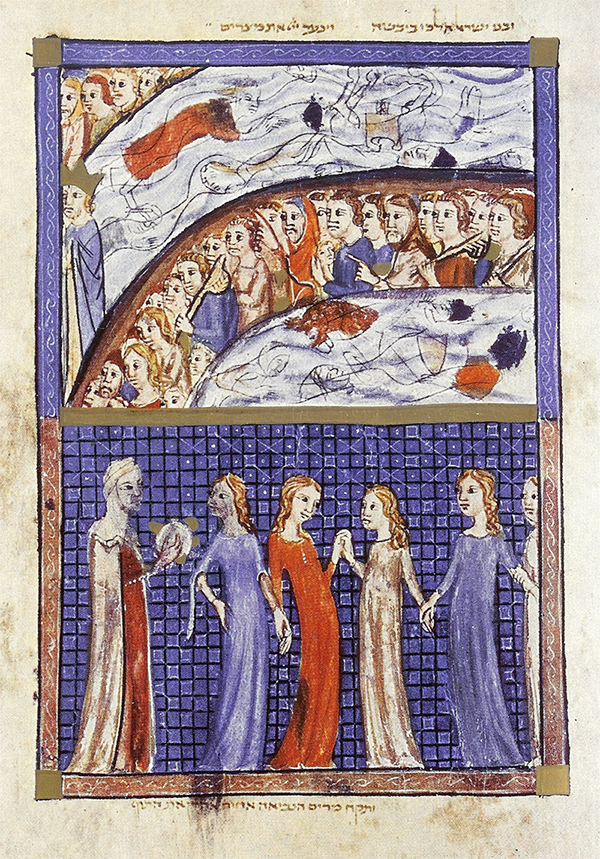 ובני ישראל הלכו ביבשה וינער יי את מצרים
ותקח מרים הנביאה אחות אהרן את התוף